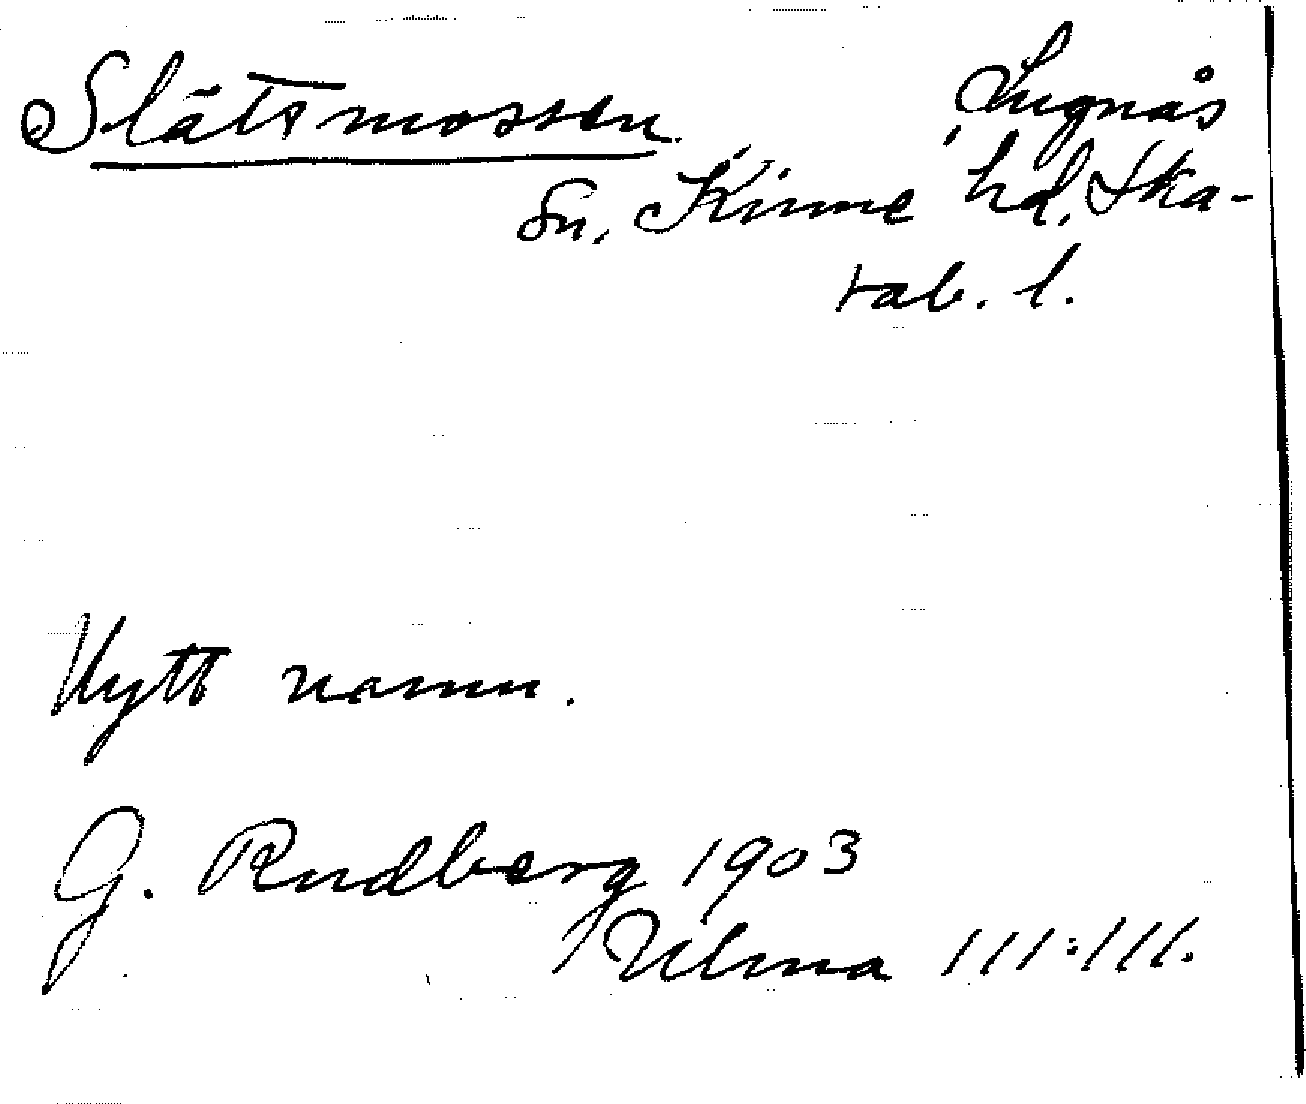 Slättsmossen.
Lugnås
sn, Kinne hd, Ska-
rab. l.
Nytt namn.
G. Rudberg 1903
Ulma 111:111.